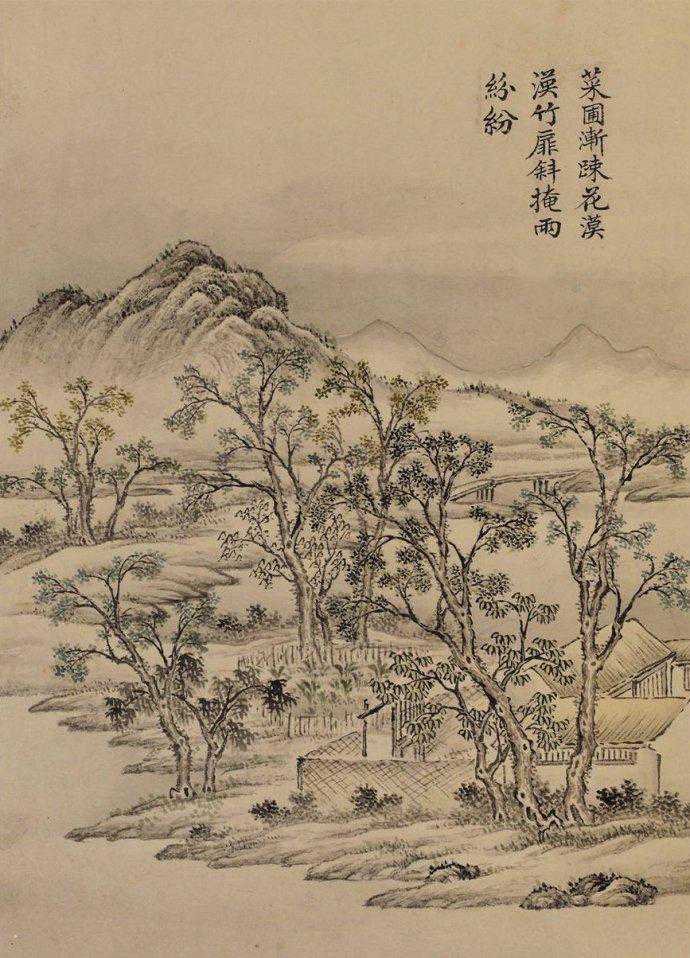 菜圃漸踈花漠
漠竹扉斜掩雨
紛紛